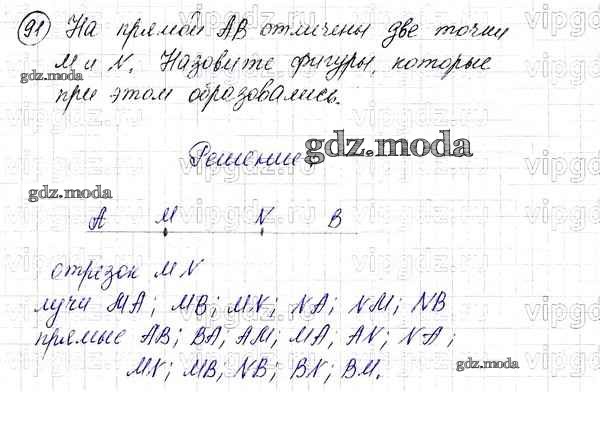 91 На прямой АВ отмечены две точки
М и N. Назовите фигуры, которые
gdz.moda
при этом образовались.
Решение:
gdz.moda
gdz.moda
А М N В
отрезок MN
лучи МА; МВ; MN; NA; NM; NB
прямые АВ; ВА; АМ; МА; AN; NA;
gdz.moda
MN; MB; NB; BN; BM.